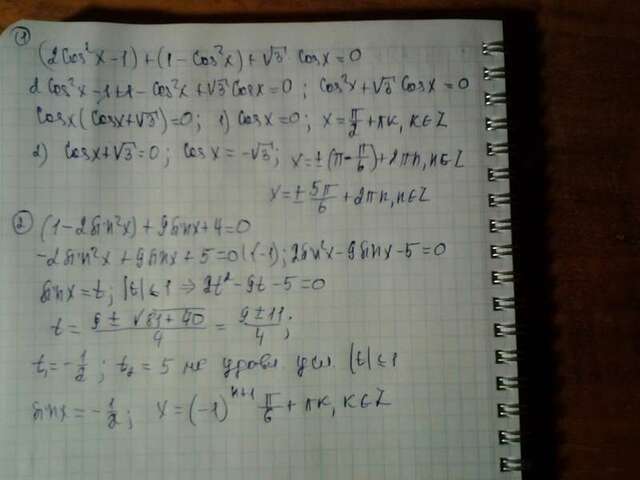 ① (2cos²x-1)+(1-cos²x)+√3 cosx=0
2cos²x-1+1-cos²x+√3cosx=0; cos²x+√3cosx=0
cosx(cosx+√3)=0; 1) cosx=0; x=π/2+πк, к∈Z
2) cosx+√3=0; cosx=-√3; x=±(π-π/6)+2πn, n∈Z
x=±5π/6+2πn, n∈Z
② (1-2sin²x)+9sinx+4=0
-2sin²x+9sinx+5=0|(-1); 2sin²x-9sinx-5=0
sinx=t; |t|≤1 ⇒ 2t²-9t-5=0
t=(9±√81+40)/4=(9±11)/4;
t₁=-1/2; t₂=5 не удовл. усл. |t|≤1
sinx=-1/2; x=(-1)ⁿ⁺¹ π/6+πк, к∈Z